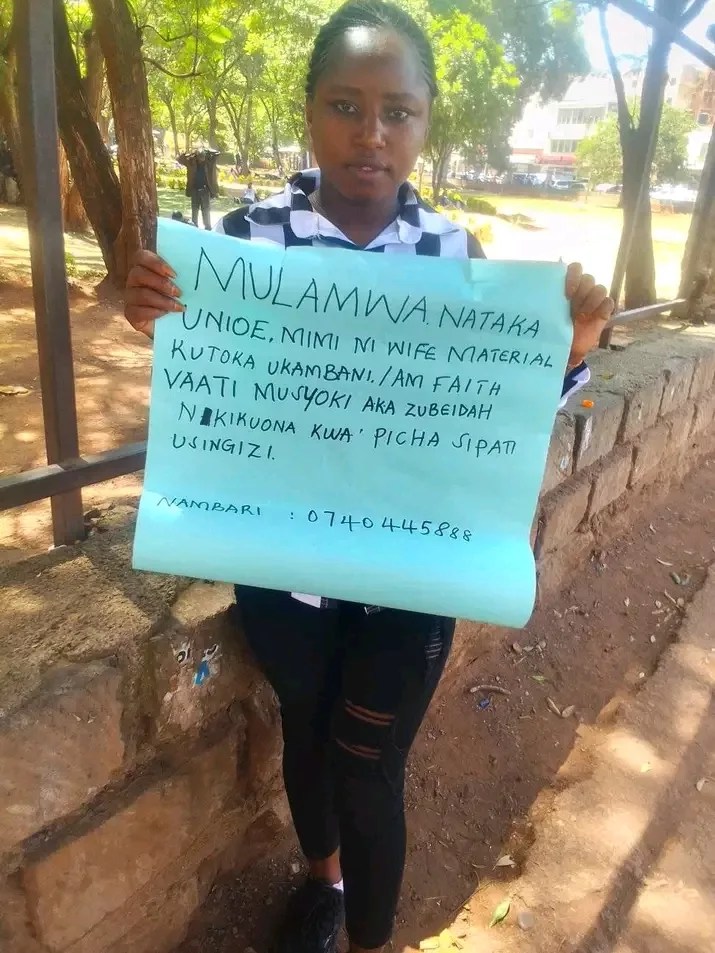 MULAMWA. NATAKA
UNIOE, MIMI NI WIFE MATERIAL
KUTOKA UKAMBANI. / AM FAITH
VAATI MUSYOKI AKA ZUBEIDAH
NIKIKUONA KWA' PICHA SIPATI
USINGIZI.
NAMBARI : 0740445888